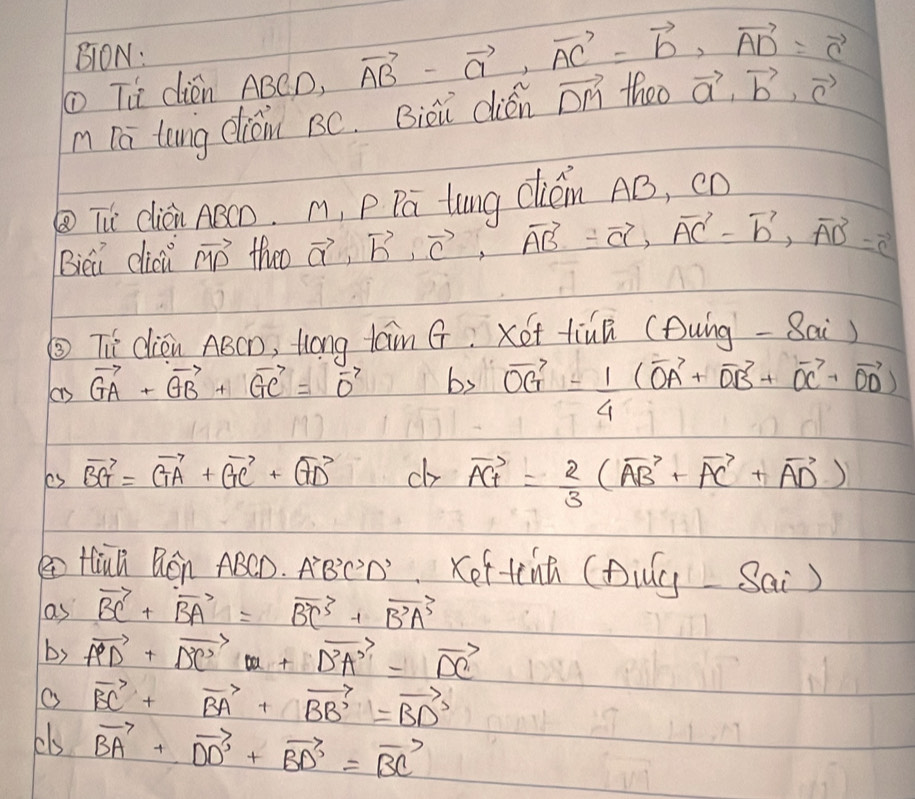 BTVN:
① Tứ diện ABCD, \overrightarrow{AB} = \vec{a}, \overrightarrow{AC} = \vec{b}, \overrightarrow{AD} = \vec{c}
M là trung điểm BC. Biểu diễn \overrightarrow{DM} theo \vec{a}, \vec{b}, \vec{c}
② Tứ diện ABCD. M, P là trung điểm AB, CD
Biểu diễn \overrightarrow{MP} theo \vec{a}, \vec{b}, \vec{c}, \overrightarrow{AB} = \vec{a}, \overrightarrow{AC} = \vec{b}, \overrightarrow{AD} = \vec{c}
③ Tứ diện ABCD, trọng tâm G. Xét tính (Đúng - Sai)
a> \overrightarrow{GA} + \overrightarrow{GB} + \overrightarrow{GC} = \vec{0} b> \overrightarrow{OG} = \frac{1}{4} (\overrightarrow{OA} + \overrightarrow{OB} + \overrightarrow{OC} + \overrightarrow{OD})
c> \overrightarrow{BG} = \overrightarrow{GA} + \overrightarrow{GC} + \overrightarrow{GD} d> \overrightarrow{AG} = \frac{2}{3} (\overrightarrow{AB} + \overrightarrow{AC} + \overrightarrow{AD})
④ Hình hộp ABCD. A'B'C'D'. Xét tính (Đúng - Sai)
a> \overrightarrow{BC} + \overrightarrow{BA} = \overrightarrow{B'C'} + \overrightarrow{B'A'}
b> \overrightarrow{AD} + \overrightarrow{D'C'} + \overrightarrow{D'A'} = \overrightarrow{DC}
c> \overrightarrow{BC} + \overrightarrow{BA} + \overrightarrow{BB'} = \overrightarrow{BD'}
d> \overrightarrow{BA} + \overrightarrow{DD'} + \overrightarrow{BD'} = \overrightarrow{BC}